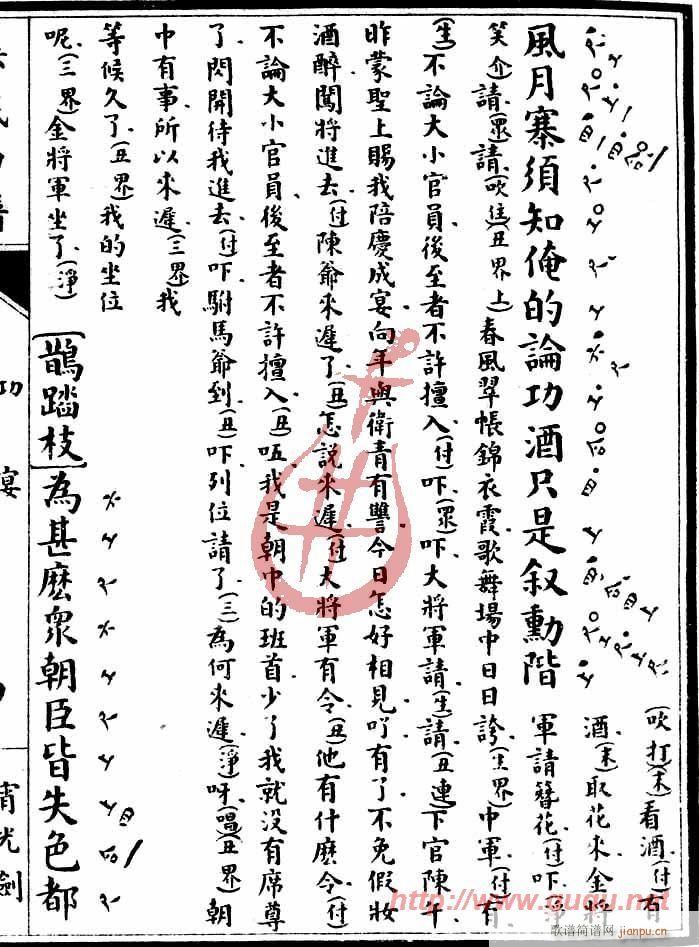 風月寨須知俺的論功酒只是叙勳階
(吹打)(末)看酒(付)有
酒(末)取花來金將
軍請簪花(付)吓
笑介)請(眾)請(吹住)(丑界上)春風翠帳錦衣霞歌舞場中日日誇(生界)中軍(付)有
(生)不論大小官員後至者不許擅入(付)吓(眾)吓大將軍請(生)請(丑連)下官陳午
昨蒙聖上賜我陪慶成宴向年與衛青有讐今日怎好相見吖有了不免假妝
酒醉闖將進去(付)陳爺來遲了(丑)怎説來遲(付)大將軍有令(丑)他有什麽令(付)
不論大小官員後至者不許擅入(丑)呸我是朝中的班首少了我就没有席尊
了閃開待我進去(付)吓駙馬爺到(丑)吓列位請了(三)為何來遲(淨)呀(唱)(丑界)朝
中有事所以來遲(三界)我
等候久了(丑界)我的坐位
呢(三界)金將軍坐了(淨)
[鵲踏枝]為甚麽眾朝臣皆失色都
功
宴
光劍
http://www.guqu.net
歌谱简谱网
jianpu.cn